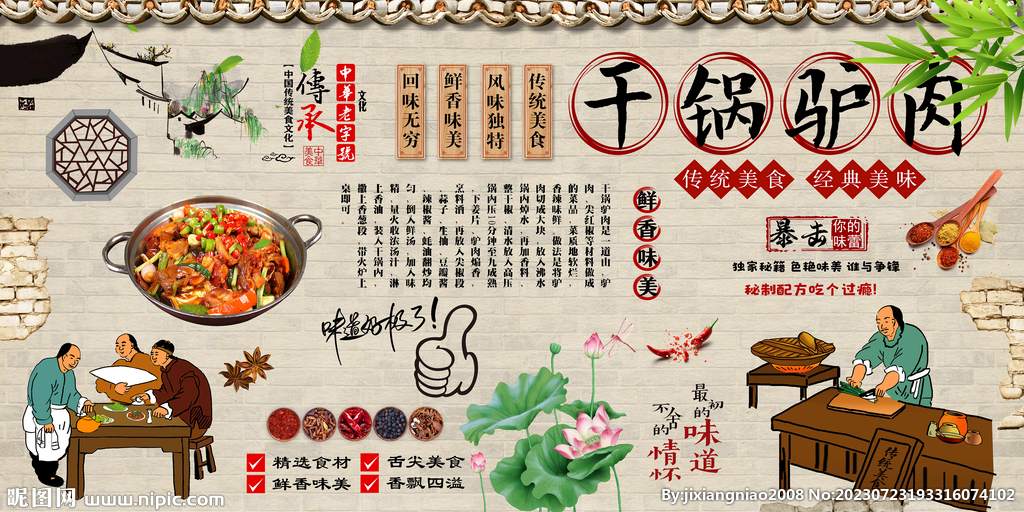 干锅驴肉
传统美食 经典美味
传统美食
风味独特
鲜香味美
回味无穷
文化
中华老字號
傳承
【中国传统美食文化】
中华美食
鲜香味美
干锅驴肉是一道由，驴
肉，尖红椒等材料做成
的菜品，菜质地软烂，
香辣味鲜，做法是将驴
肉切成大块，放入沸水
锅内焯水，再加香料，
整干椒，清水放入高压
锅内压10分钟至九成熟
，下姜片，驴肉煸香，
烹料酒，再放入尖椒段
、蒜子，生抽、豆瓣酱
、辣椒酱、蚝油翻炒均
匀，倒入鲜汤，加入味
精，量火收浓汤汁，淋
上香油，装入干锅内，
撒上香葱段，带火炉上
桌即可。
暴击
你的味蕾
独家秘籍 色艳味美 谁与争锋
秘制配方吃个过瘾!
味道好极了!
最初的味道
不舍的情怀
精选食材
舌尖美食
鲜香味美
香飘四溢
传统美食
昵图网 www.nipic.com
By:jixiangniao2008 No:20230723193316074102